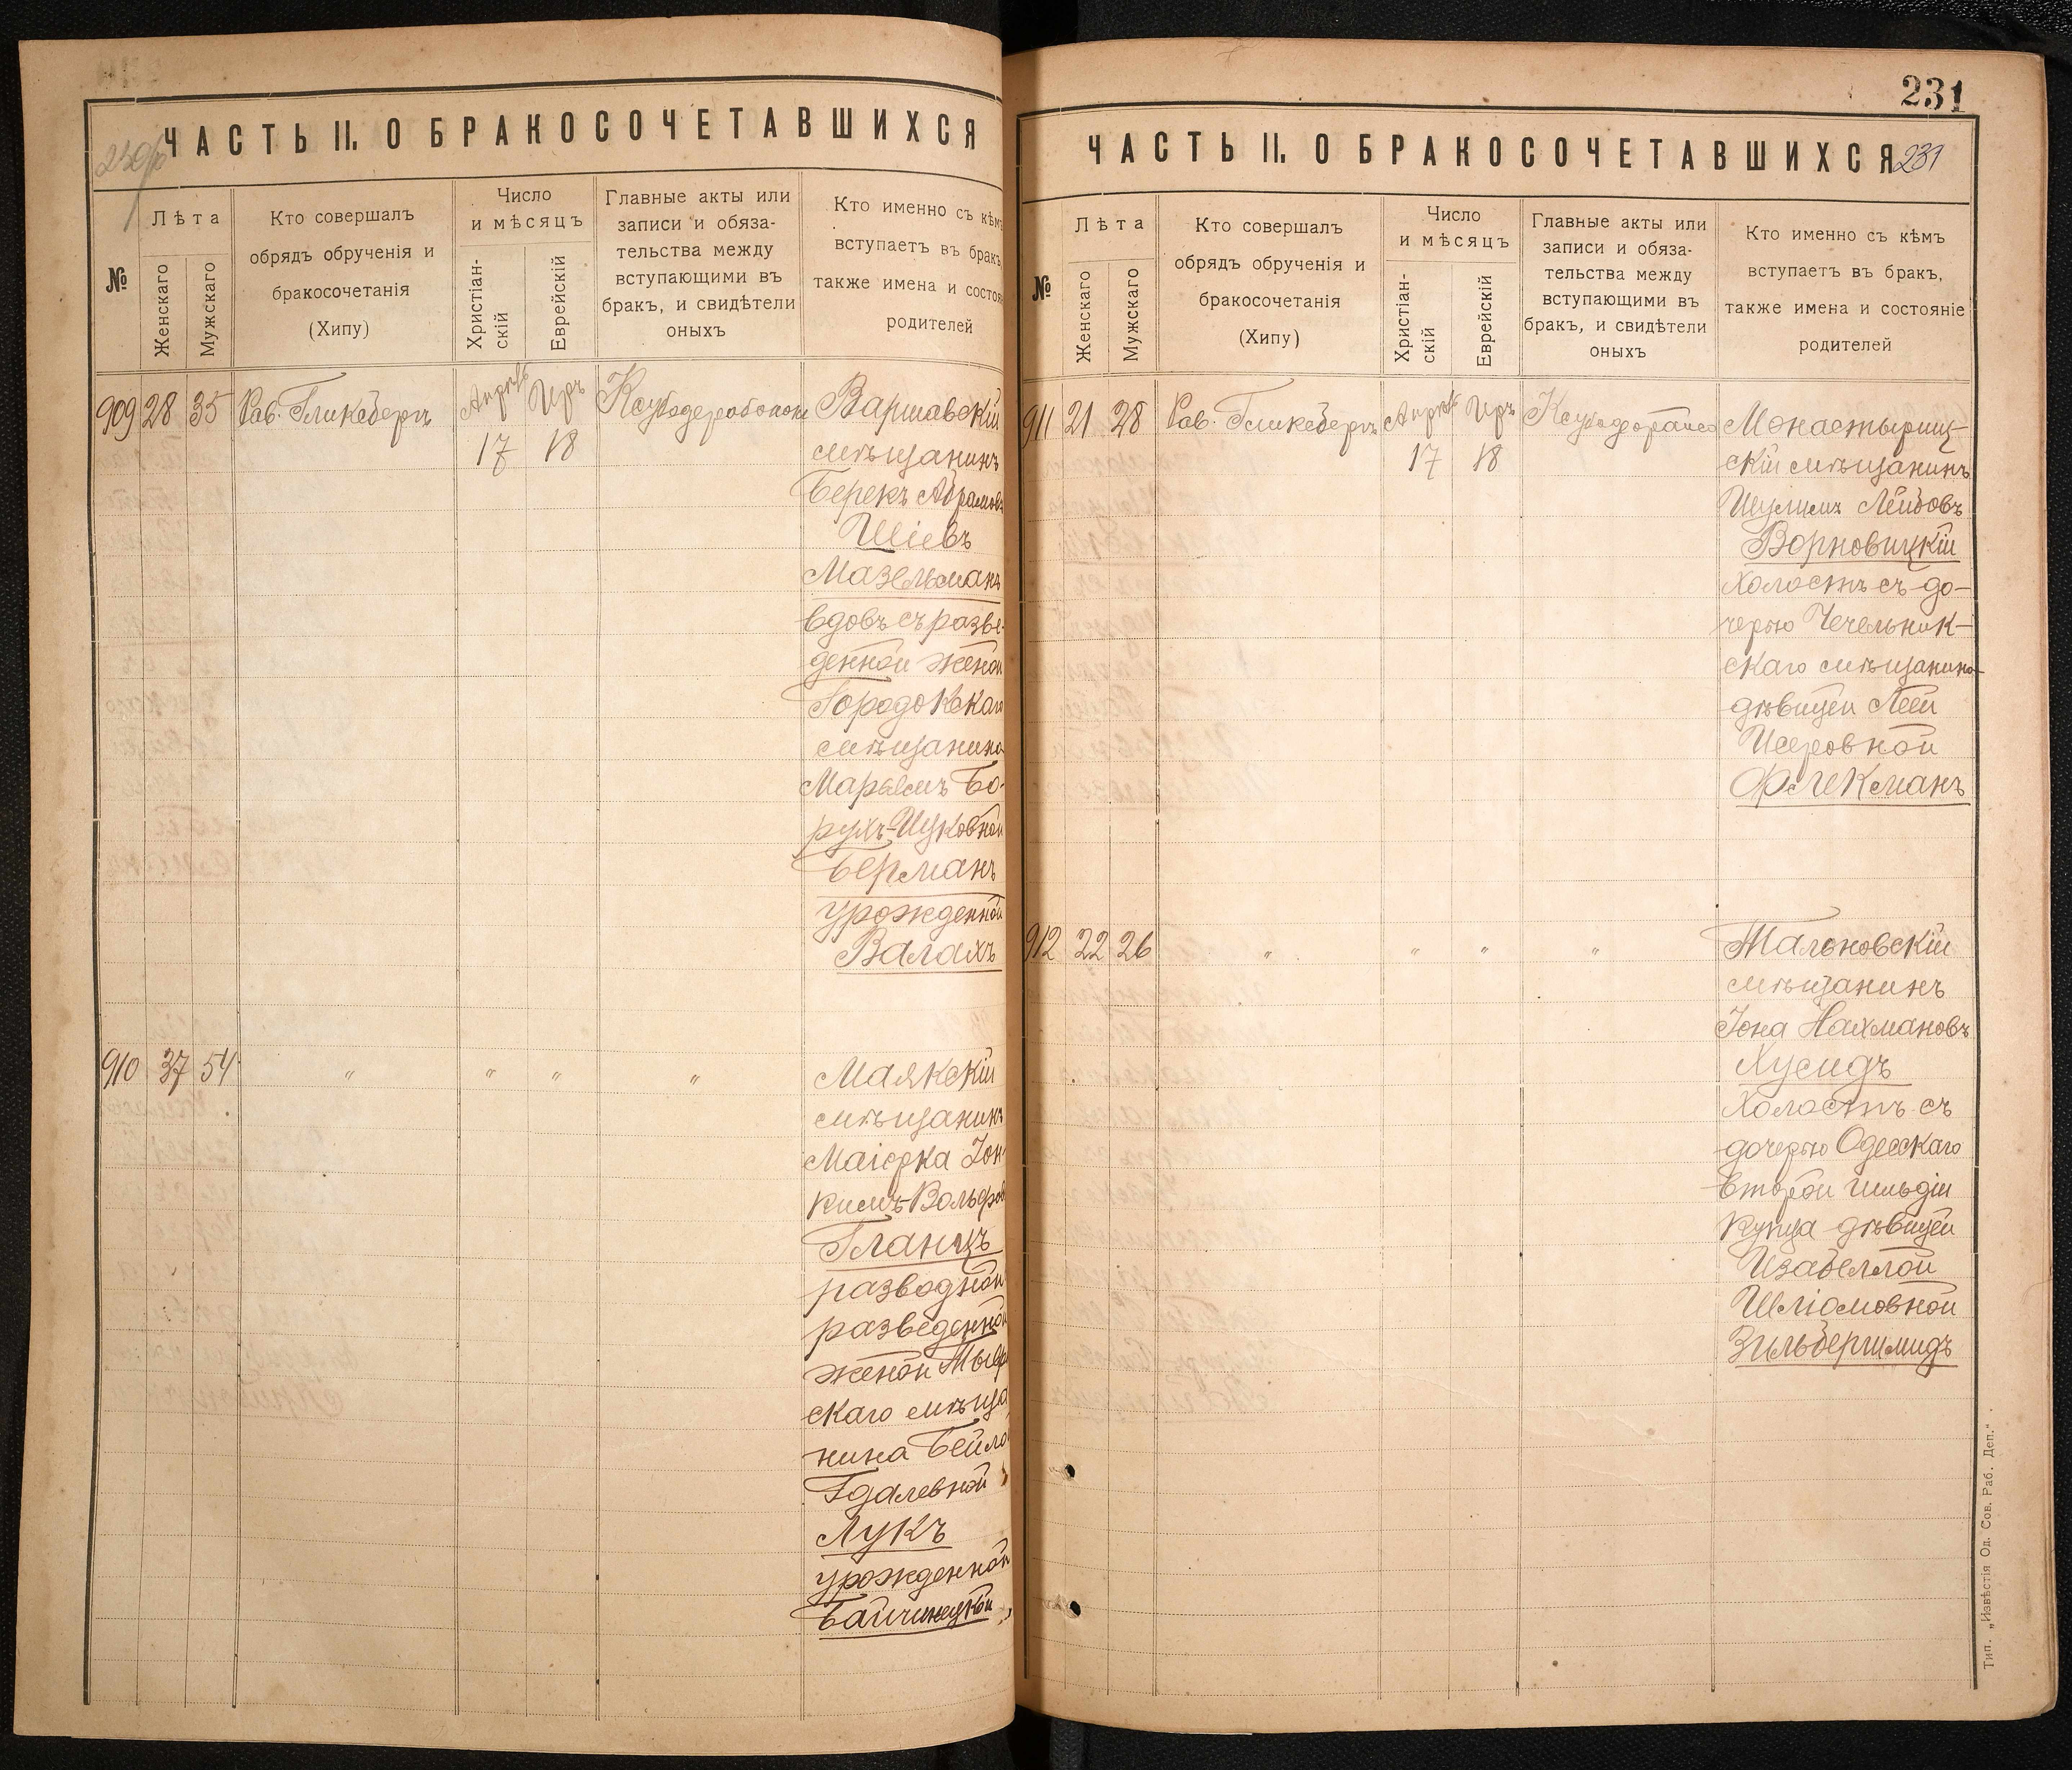 ЧАСТЬ II. О БРАКОСОЧЕТАВШИХСЯ
№
Лѣта
Женскаго
Мужскаго
Кто совершалъ
обрядъ обрученія и
бракосочетанія
(Хипу)
Число
и мѣсяцъ
Христіан-
скій
Еврейскій
Главные акты или
записи и обяза-
тельства между
вступающими въ
бракъ, и свидѣтели
оныхъ
Кто именно съ кѣмъ
вступаетъ въ бракъ,
также имена и состоя
родителей
909 28 35 Рав. Гликсбергъ Апрѣль Иръ Варшавскій
17 18 мѣщанинъ
Берекъ Абрамовъ
Шіевъ
Мазельманъ
вдовъ съ разве-
денной женой
Городокскаго
мѣщанина
Марьемъ Бо-
рухъ-Ицковной
Берманъ
урожденной
Валахъ
910 37 54 " " " " Маякскій
мѣщанинъ
Маіорка Іон
кимъ-Вольфов
Гланцъ
разводной
разведенной
женой
скаго мѣща
нина Бейлой
Гдалевной
Лукъ
урожденной
231
ЧАСТЬ II. О БРАКОСОЧЕТАВШИХСЯ 231
№
Лѣта
Женскаго
Мужскаго
Кто совершалъ
обрядъ обрученія и
бракосочетанія
(Хипу)
Число
и мѣсяцъ
Христіан-
скій
Еврейскій
Главные акты или
записи и обяза-
тельства между
вступающими въ
бракъ, и свидѣтели
оныхъ
Кто именно съ кѣмъ
вступаетъ въ бракъ,
также имена и состояніе
родителей
911 21 28 Рав. Гликсбергъ Апрѣль Иръ Монастырищ-
17 18 скій мѣщанинъ
Шулимъ Лейбовъ
Ворновицкій
холостъ съ до-
черью Чечельник-
скаго мѣщанина
дѣвицей Леей
Исеровной
Флекманъ
912 22 26 " " " " Тальновскій
мѣщанинъ
Іона Нахмановъ
Хусидъ
холостъ съ
дочерью Одесскаго
второй гильдіи
купца дѣвицей
Изабеллой
Шліомовной
Зильбершмидъ
Тип. „Извѣстія Од. Сов. Раб. Деп.".